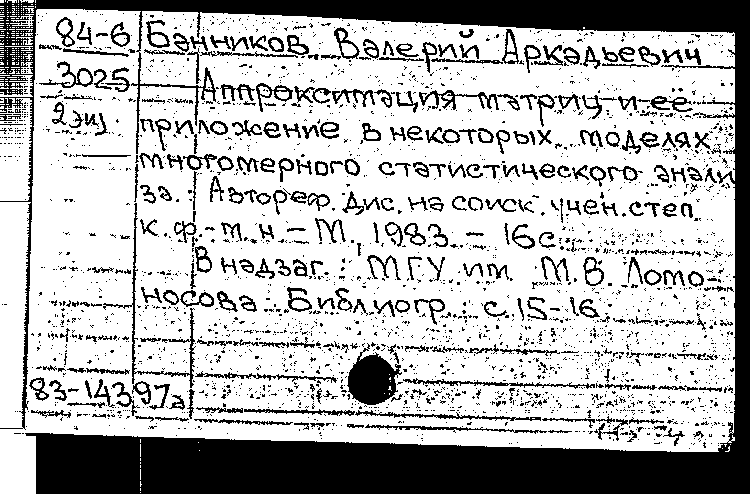 84-6 Банников, Валерий Аркадьевич
3025 Аппроксимация матриц и её
2 экз. приложение в некоторых моделях
многомерного статистического анали
за.: Автореф. дис. на соиск. учен. степ.
к. ф.-м. н. - М., 1983. - 16 с.
В надзаг.: МГУ им. М.В. Ломо-
носова. Библиогр.: с. 15-16.
83-14397а